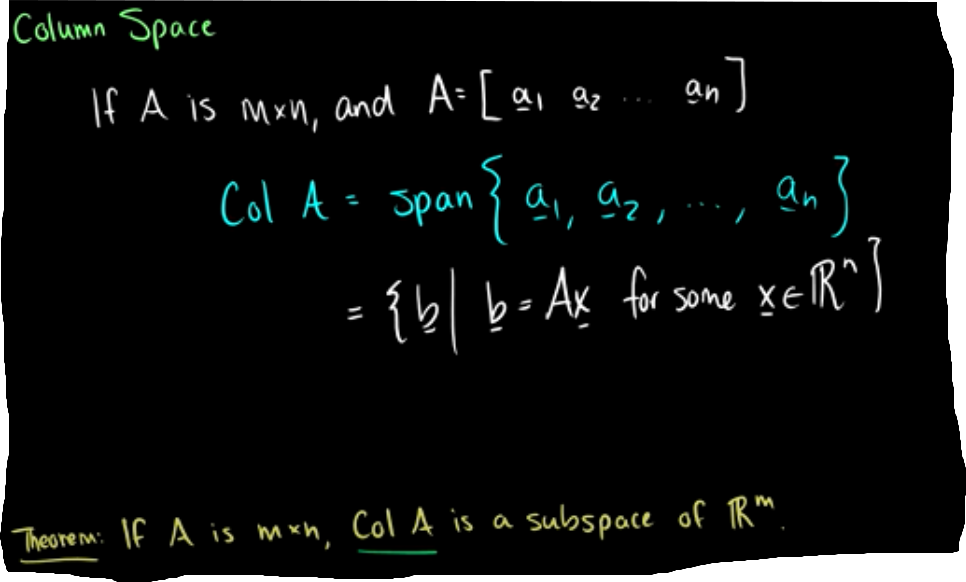 Column Space
If A is m×n, and A = [a̲₁ a̲₂ ... a̲n]
Col A = span{a̲₁, a̲₂, ..., a̲n}
= {b̲ | b̲ = Ax̲ for some x̲ ∈ ℝⁿ}
Theorem: If A is m×n, Col A is a subspace of ℝᵐ.